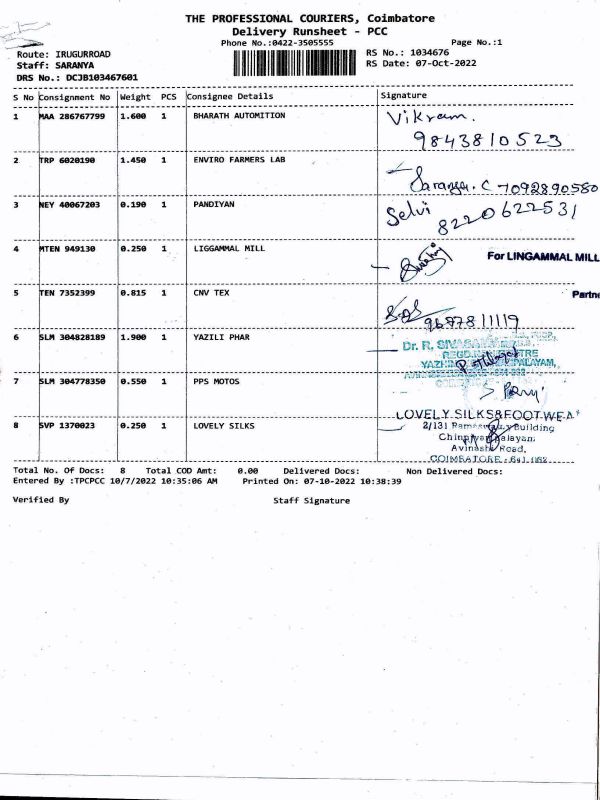 THE PROFESSIONAL COURIERS, Coimbatore
Delivery Runsheet - PCC
Phone No.:0422-3505555 Page No.:1
Route: IRUGURROAD RS No.: 1034676
Staff: SARANYA RS Date: 07-Oct-2022
DRS No.: DCJB103467601
S No Consignment No Weight PCS Consignee Details Signature
1 MAA 286767799 1.600 1 BHARATH AUTOMITION Vikram.
9843810523
2 TRP 6020190 1.450 1 ENVIRO FARMERS LAB
C 7092890580
3 NEY 40067203 0.190 1 PANDIYAN Selvi
8220622531
4 MTEN 949130 0.250 1 LIGGAMMAL MILL For LINGAMMAL MILL
5 TEN 7352399 0.815 1 CNV TEX Partne
9687811119
6 SLM 304828189 1.900 1 YAZILI PHAR Dr. R.
7 SLM 304778350 0.550 1 PPS MOTOS
8 SVP 1370023 0.250 1 LOVELY SILKS LOVELY SILKS&FOOT WEA
2/131 Building
Avinashi Road,
COIMBATORE
Total No. Of Docs: 8 Total COD Amt: 0.00 Delivered Docs: Non Delivered Docs:
Entered By :TPCPCC 10/7/2022 10:35:06 AM Printed On: 07-10-2022 10:38:39
Verified By Staff Signature